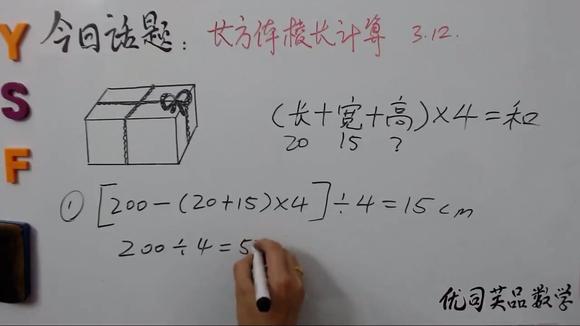 Y
S
F
今日话题：长方体棱长计算 3.12.
(长+宽+高)×4=和
20 15 ?
① [200-(20+15)×4]÷4=15cm
200÷4=5
优司芙品数学